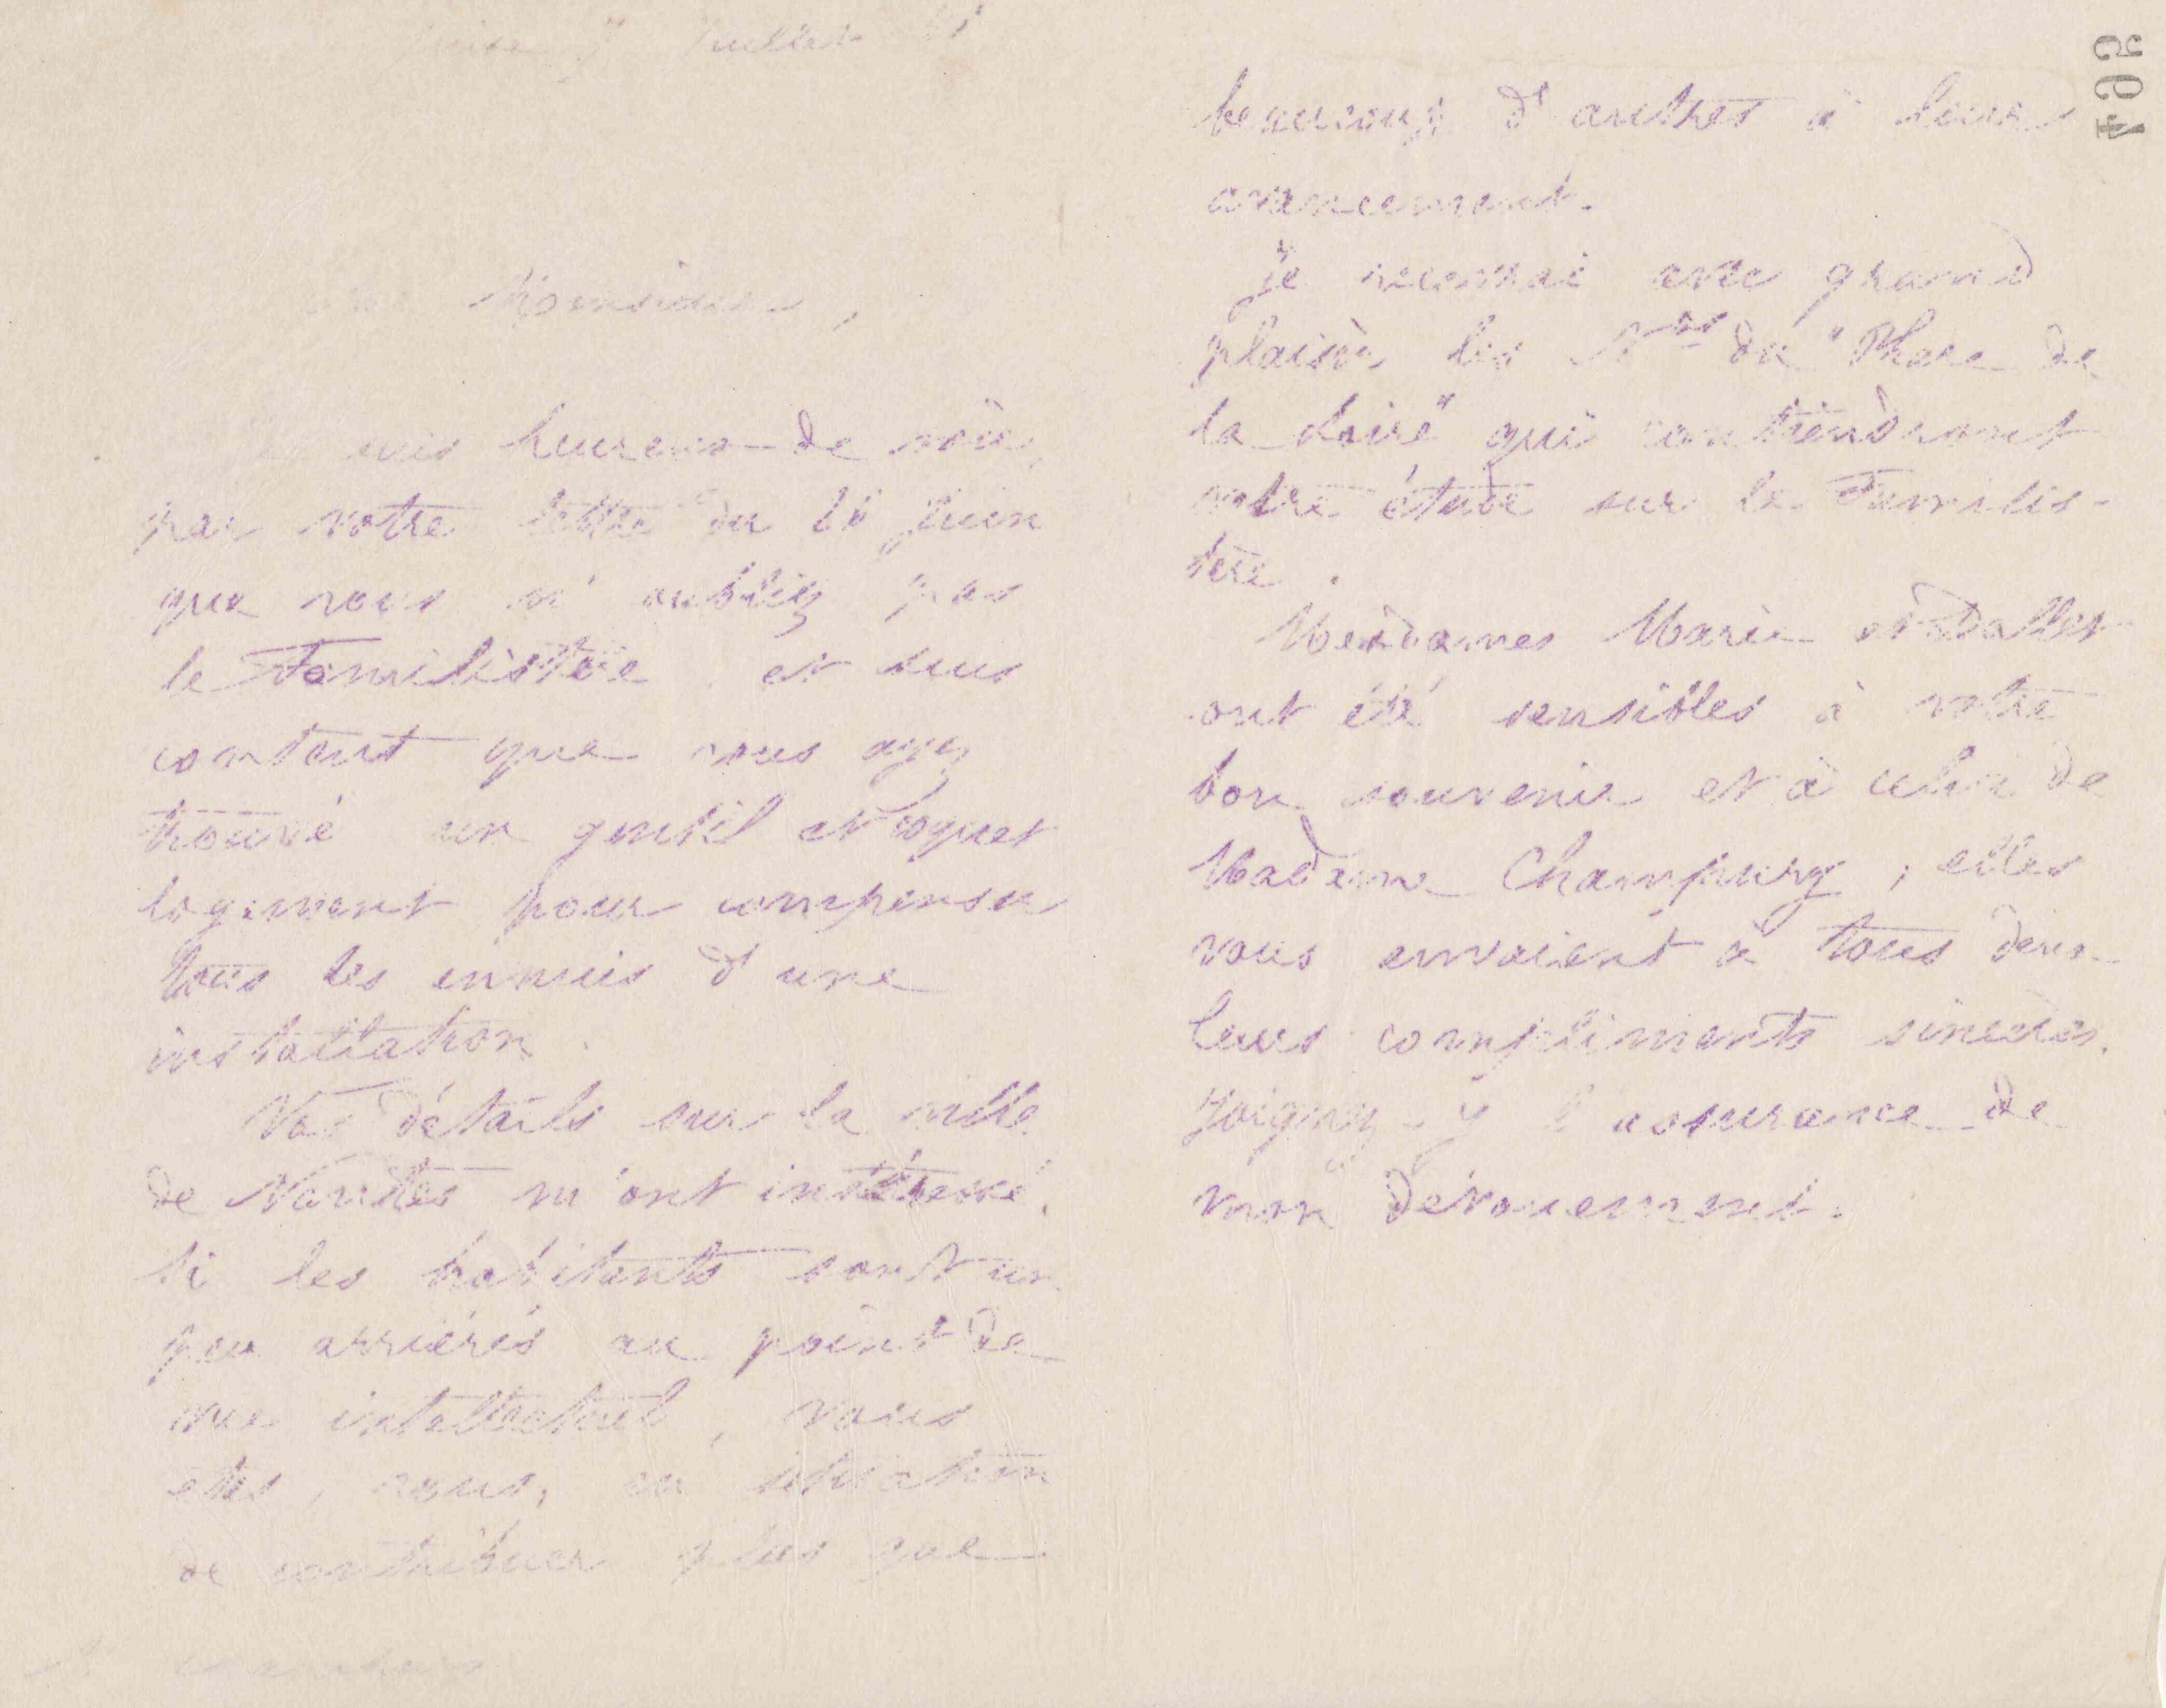 Guise 7 Juillet
Monsieur,
suis heureux de voir,
par votre lettre du 26 Juin
que vous n'oubliez pas
le Familistère et suis
content que vous ayez
trouvé un gentil et coquet
logement pour compenser
tous les ennuis d'une
installation.
Vos détails sur la ville
de Nantes m'ont intéressé.
Si les habitants sont un
peu arriérés au point de
vue intellectuel, vous
êtes, vous, en situation
de contribuer plus que
beaucoup d'autres à leur
avancement.
Je recevrai avec grand
plaisir les Nos du "Phare de
la Loire" qui contiendront
votre étude sur le Familis-
tère.
Mesdames Marie et Dallet
ont été sensibles à votre
bon souvenir et à celui de
Madame Champury ; elles
vous envoient à tous deux
leurs compliments sincères.
Joignez-y l'assurance de
mon dévouement.
564